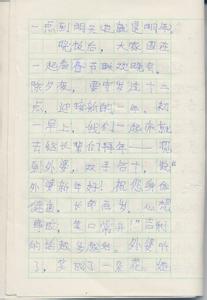 一点到明天也就是明年。
晚饭后，大家围在
一起看春节联欢晚会。
除夕夜，要守岁过十二
点，迎接新的一年。初
一早上，我们一起
去给长辈们拜年——
到外婆，双手合十，"
外婆新年好！祝您身体
健康，长命百岁，心想
事成，笑口常开！"吉利
的话越多越好。外婆听
了，笑成了一朵花，给